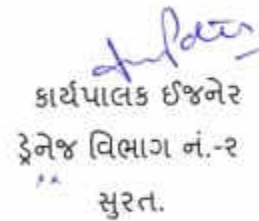 કાર્યપાલક ઈજનેર
ડ્રેનેજ વિભાગ નં.-૨
સુરત.